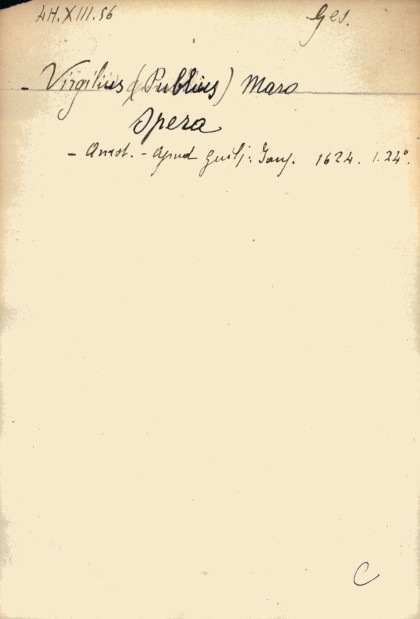 4H.XIII.56 Ges.
- Virgilius (Publius) Maro
Opera
- Amst. - Apud Guilj: Janss. 1624. 1.24°.
C